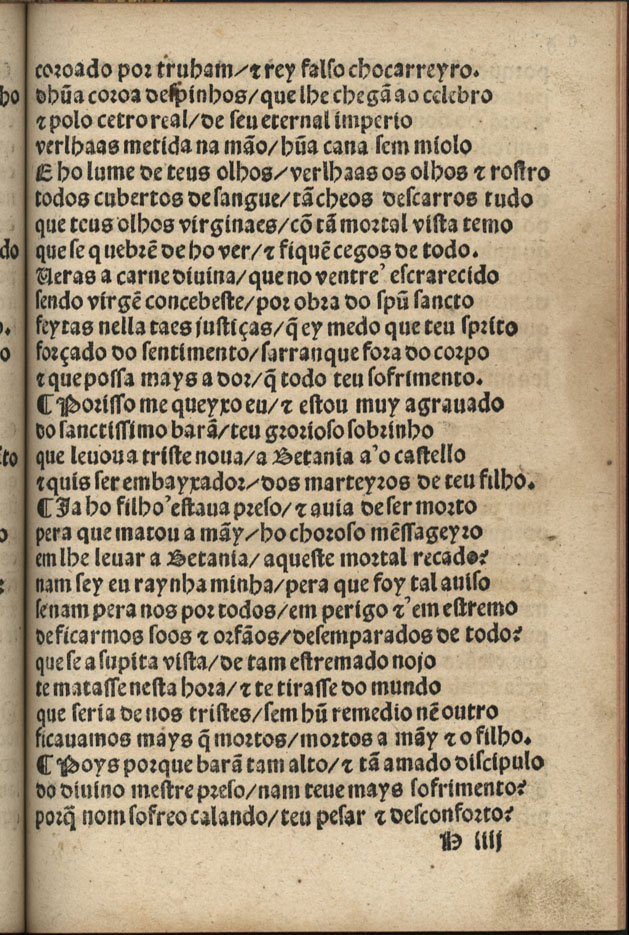 coroado por truham/⁊ rey falso chocarreyro.
dhũa coroa despinhos/que lhe chegã ao celebro
⁊ polo cetro real/de seu eternal imperio
verlhaas metida na mão/hũa cana sem miolo
E ho lume de teus olhos/verlhaas os olhos ⁊ rostro
todos cubertos de sangue/tã cheos descarros tudo
que teus olhos virginaes/cõ tã mortal vista temo
que se quebrẽ de ho ver/⁊ fiquẽ cegos de todo.
Ueras a carne divina/que no ventre' escrarecido
sendo virgẽ concebeste/por obra do spũ sancto
feytas nella taes justiças/q̃ ey medo que teu sprito
forçado do sentimento/sarranque fora do corpo
⁊ que possa mays a dor/q̃ todo teu sofrimento.
¶ Porisso me queyxo eu/⁊ estou muy agravado
do sanctissimo barã/teu grorioso sobrinho
que levou a triste nova/a Betania a'o castello
⁊ quis ser embayxador/dos marteyros de teu filho.
¶ Ja ho filho'estava preso/⁊ avia de ser morto
pera que matou a mãy/ho choroso mẽssageyro
em lhe levar a Betania/aqueste mortal recado?
nam sey eu raynha minha/pera que foy tal aviso
senam pera nos por todos/em perigo ⁊'em estremo
de ficarmos soos ⁊ orfãos/desemparados de todo?
que se a supita vista/de tam estremado nojo
te matasse nesta hora/⁊ te tirasse do mundo
que seria de nos tristes/sem hũ remedio nẽ outro
ficavamos mays q̃ mortos/mortos a mãy ⁊ o filho.
¶ Poys porque barã tam alto/⁊ tã amado discipulo
do divino mestre preso/nam teve mays sofrimento?
porq̃ nom sofreo calando/teu pesar ⁊ desconforto?
H iiij